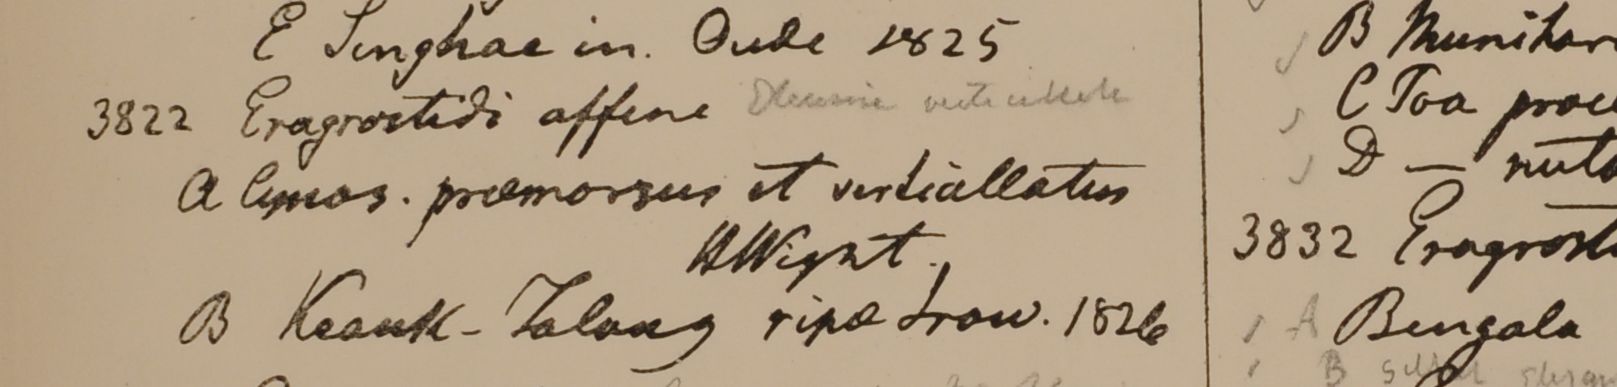 E Singhae in. Oude 1825
3822 Eragrostidi affine Eleusine verticillata
A Cynos. præmorsus et verticillatus
HWight.
B Keauk-Talaung ripæ Iraw. 1826
B Munihari
C Poa proce
D — nuta
3832 Eragrosti
A Bengala
B